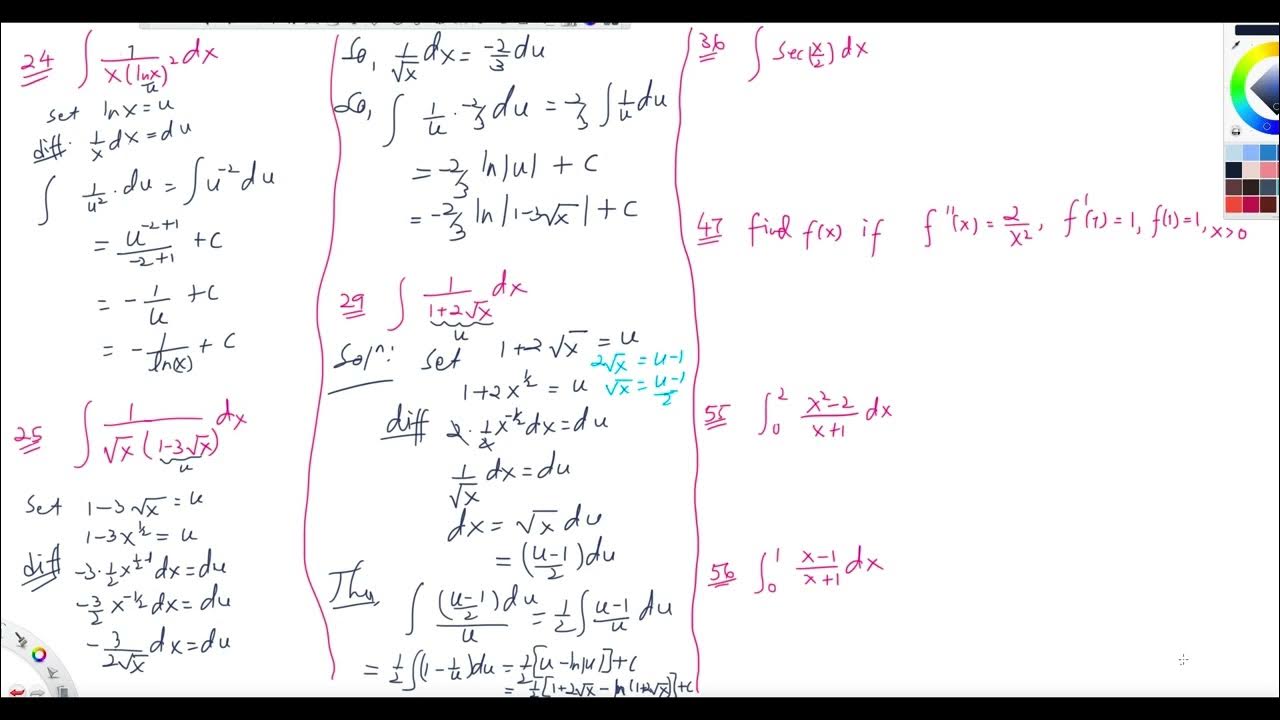 24 ∫ 1/(x(ln x)²) dx
u
set ln x = u
diff. 1/x dx = du
∫ 1/u² · du = ∫ u⁻² du
= u⁻²⁺¹/(-2+1) + C
= - 1/u + C
= - 1/ln(x) + C
25 ∫ 1/(√x (1-3√x)) dx
u
set 1-3√x = u
1-3x^½ = u
diff -3·½x^(½-1) dx = du
-3/2 x^-½ dx = du
- 3/(2√x) dx = du
So, 1/√x dx = -2/3 du
So, ∫ 1/u · -2/3 du = -2/3 ∫ 1/u du
= -2/3 ln|u| + C
= -2/3 ln|1-3√x| + C
29 ∫ 1/(1+2√x) dx
u
Solⁿ: set 1+2√x = u
2√x = u-1
1+2x^½ = u
√x = (u-1)/2
diff 2·½x^-½ dx = du
1/√x dx = du
dx = √x du
= ((u-1)/2) du
Thus, ∫ ((u-1)/2) du / u = ½ ∫ (u-1)/u du
= ½ ∫ (1 - 1/u) du = ½ [u - ln|u|] + C
= ½ [1+2√x - ln(1+2√x)] + C
36 ∫ sec(x/2) dx
47 find f(x) if f''(x) = 2/x², f'(1) = 1, f(1) = 1, x>0
55 ∫₀² (x²-2)/(x+1) dx
56 ∫₀¹ (x-1)/(x+1) dx